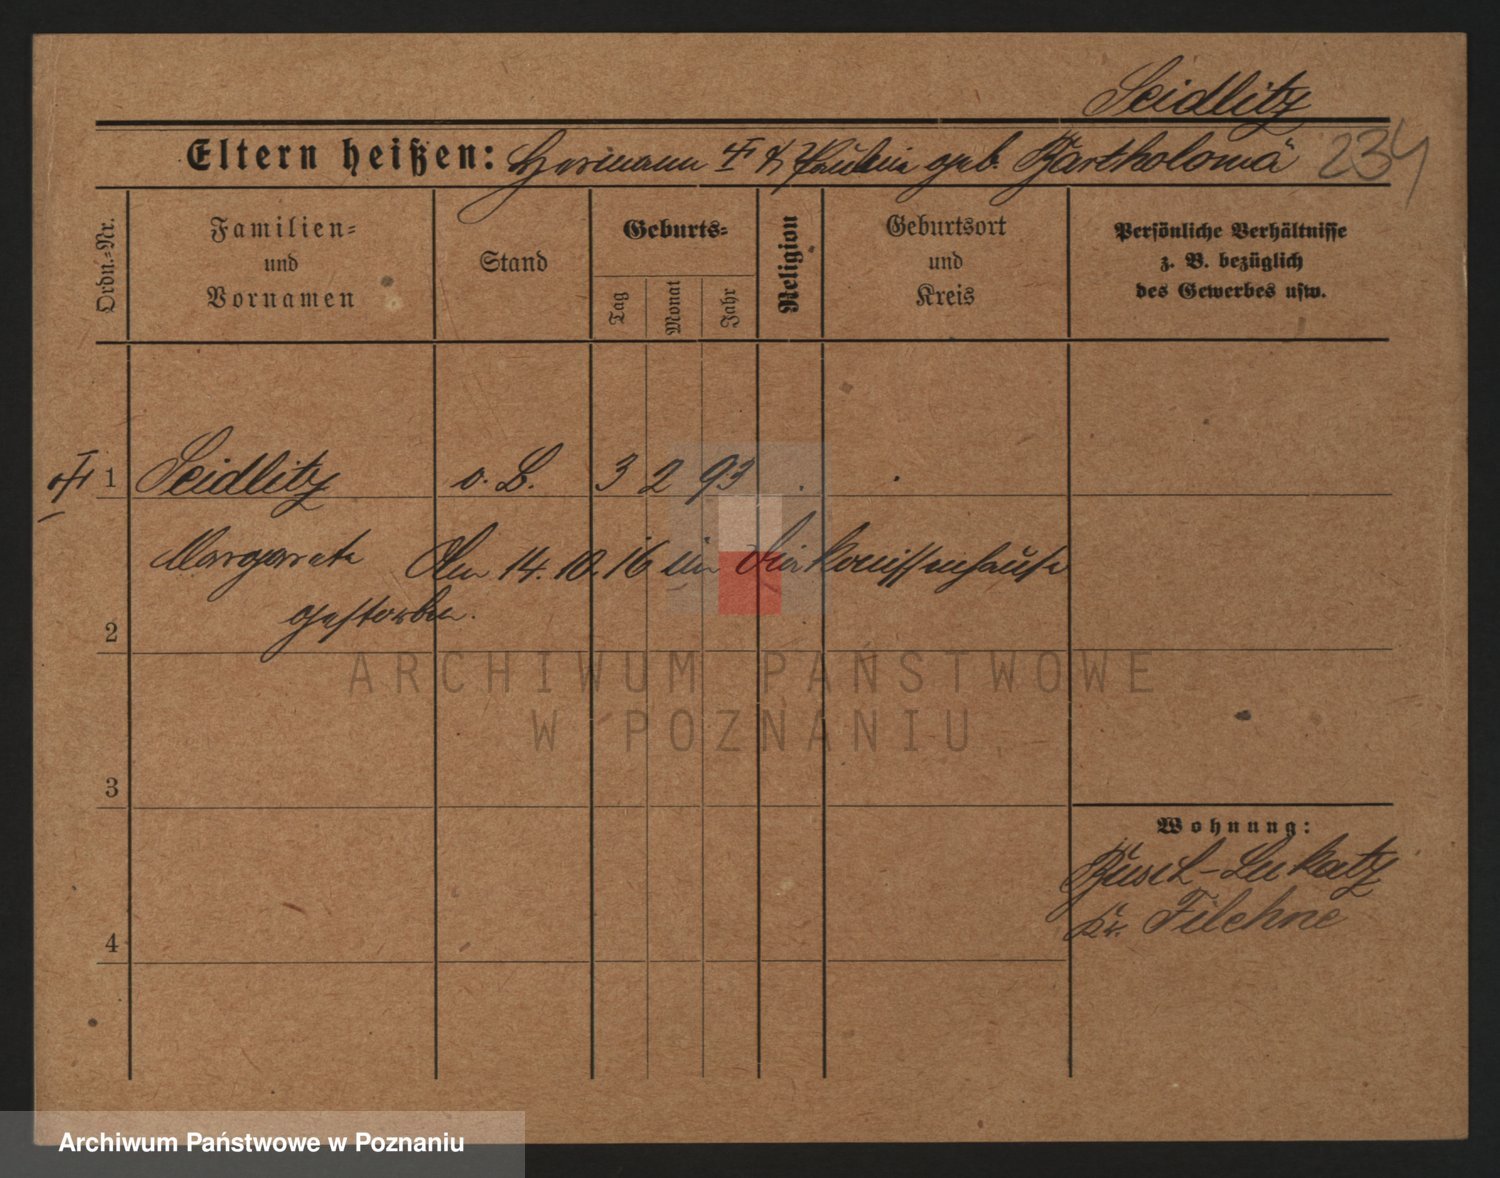 Seidlitz
Eltern heißen: Hermann † & Pauline geb. Bartholomä 234
Ordn.-Nr.
Familien-
und
Vornamen
Stand
Geburts-
Tag
Monat
Jahr
Religion
Geburtsort
und
Kreis
Persönliche Verhältnisse
z. B. bezüglich
des Gewerbes usw.
† 1 Seidlitz o. B. 3 2 93
Margarete Am 14. 10. 16 im Diakonissenhause
gestorben.
2
ARCHIWUM PAŃSTWOWE
W POZNANIU
3
Wohnung:
Busch-Lukatz
Kr. Filehne
4
Archiwum Państwowe w Poznaniu